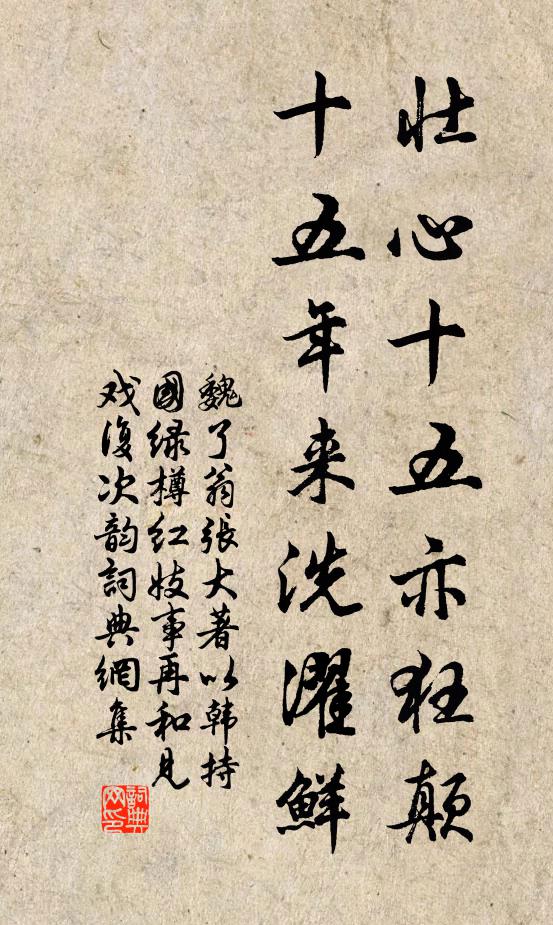 壮心十五亦狂颠
十五年来洗濯鲜
魏了翁張大著以韩持
國绿樽红妓事再和见
戏復次韵詞典網集
詞典网印